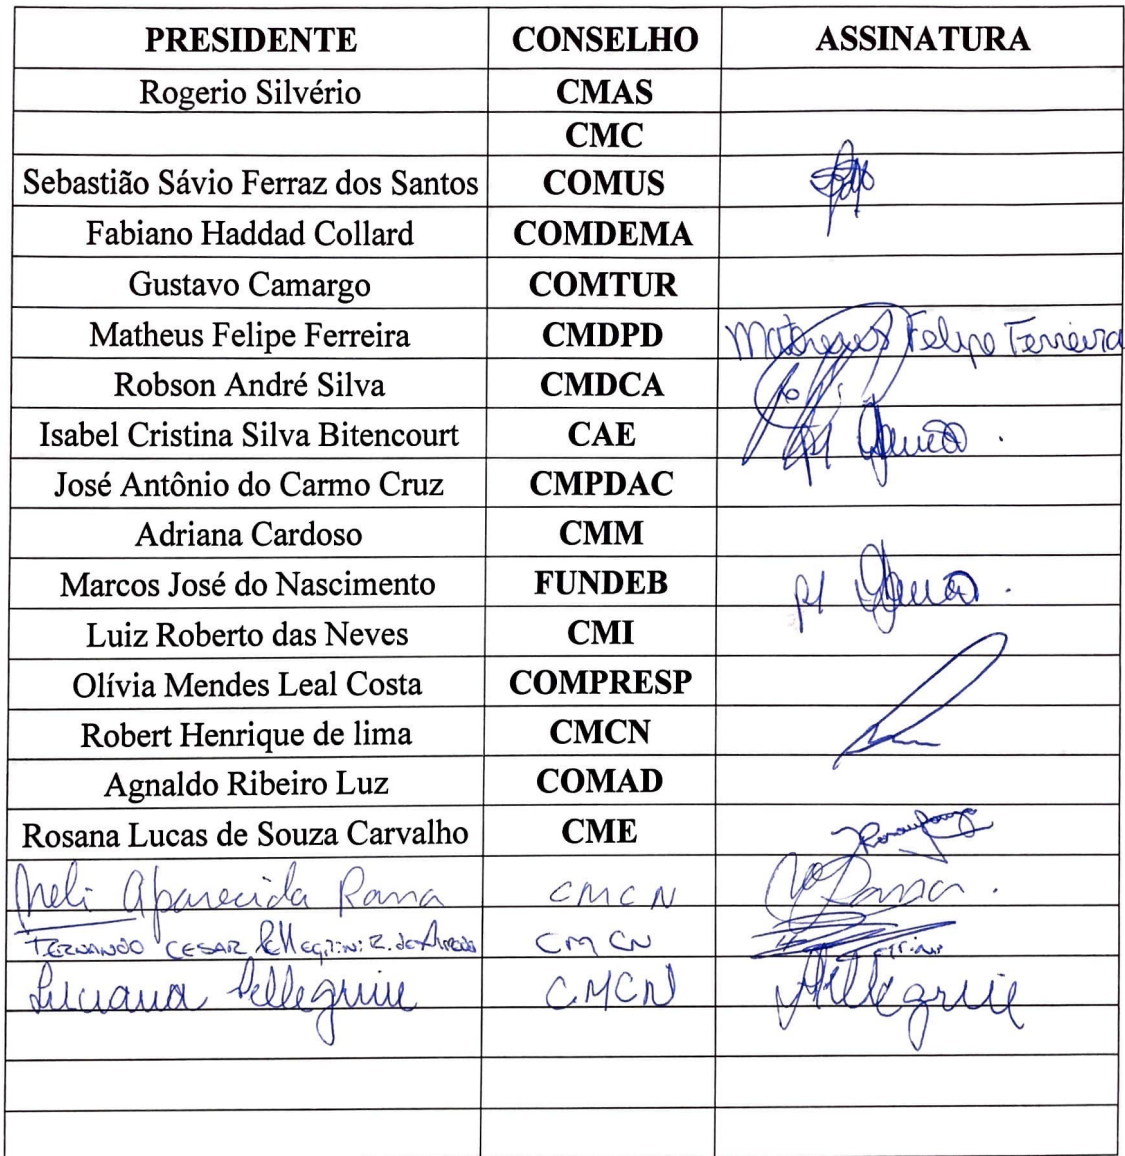 PRESIDENTE CONSELHO ASSINATURA
Rogerio Silvério CMAS
CMC
Sebastião Sávio Ferraz dos Santos COMUS
Fabiano Haddad Collard COMDEMA
Gustavo Camargo COMTUR
Matheus Felipe Ferreira CMDPD Matheus Felipe Ferreira
Robson André Silva CMDCA
Isabel Cristina Silva Bitencourt CAE p/
José Antônio do Carmo Cruz CMPDAC
Adriana Cardoso CMM
Marcos José do Nascimento FUNDEB p/
Luiz Roberto das Neves CMI
Olívia Mendes Leal Costa COMPRESP
Robert Henrique de lima CMCN
Agnaldo Ribeiro Luz COMAD
Rosana Lucas de Souza Carvalho CME
Neli Aparecida Rama CMCN
FERNANDO CESAR PellegRiNi R. de CMCN
Luciana Pellegrini CMCN Pellegrini